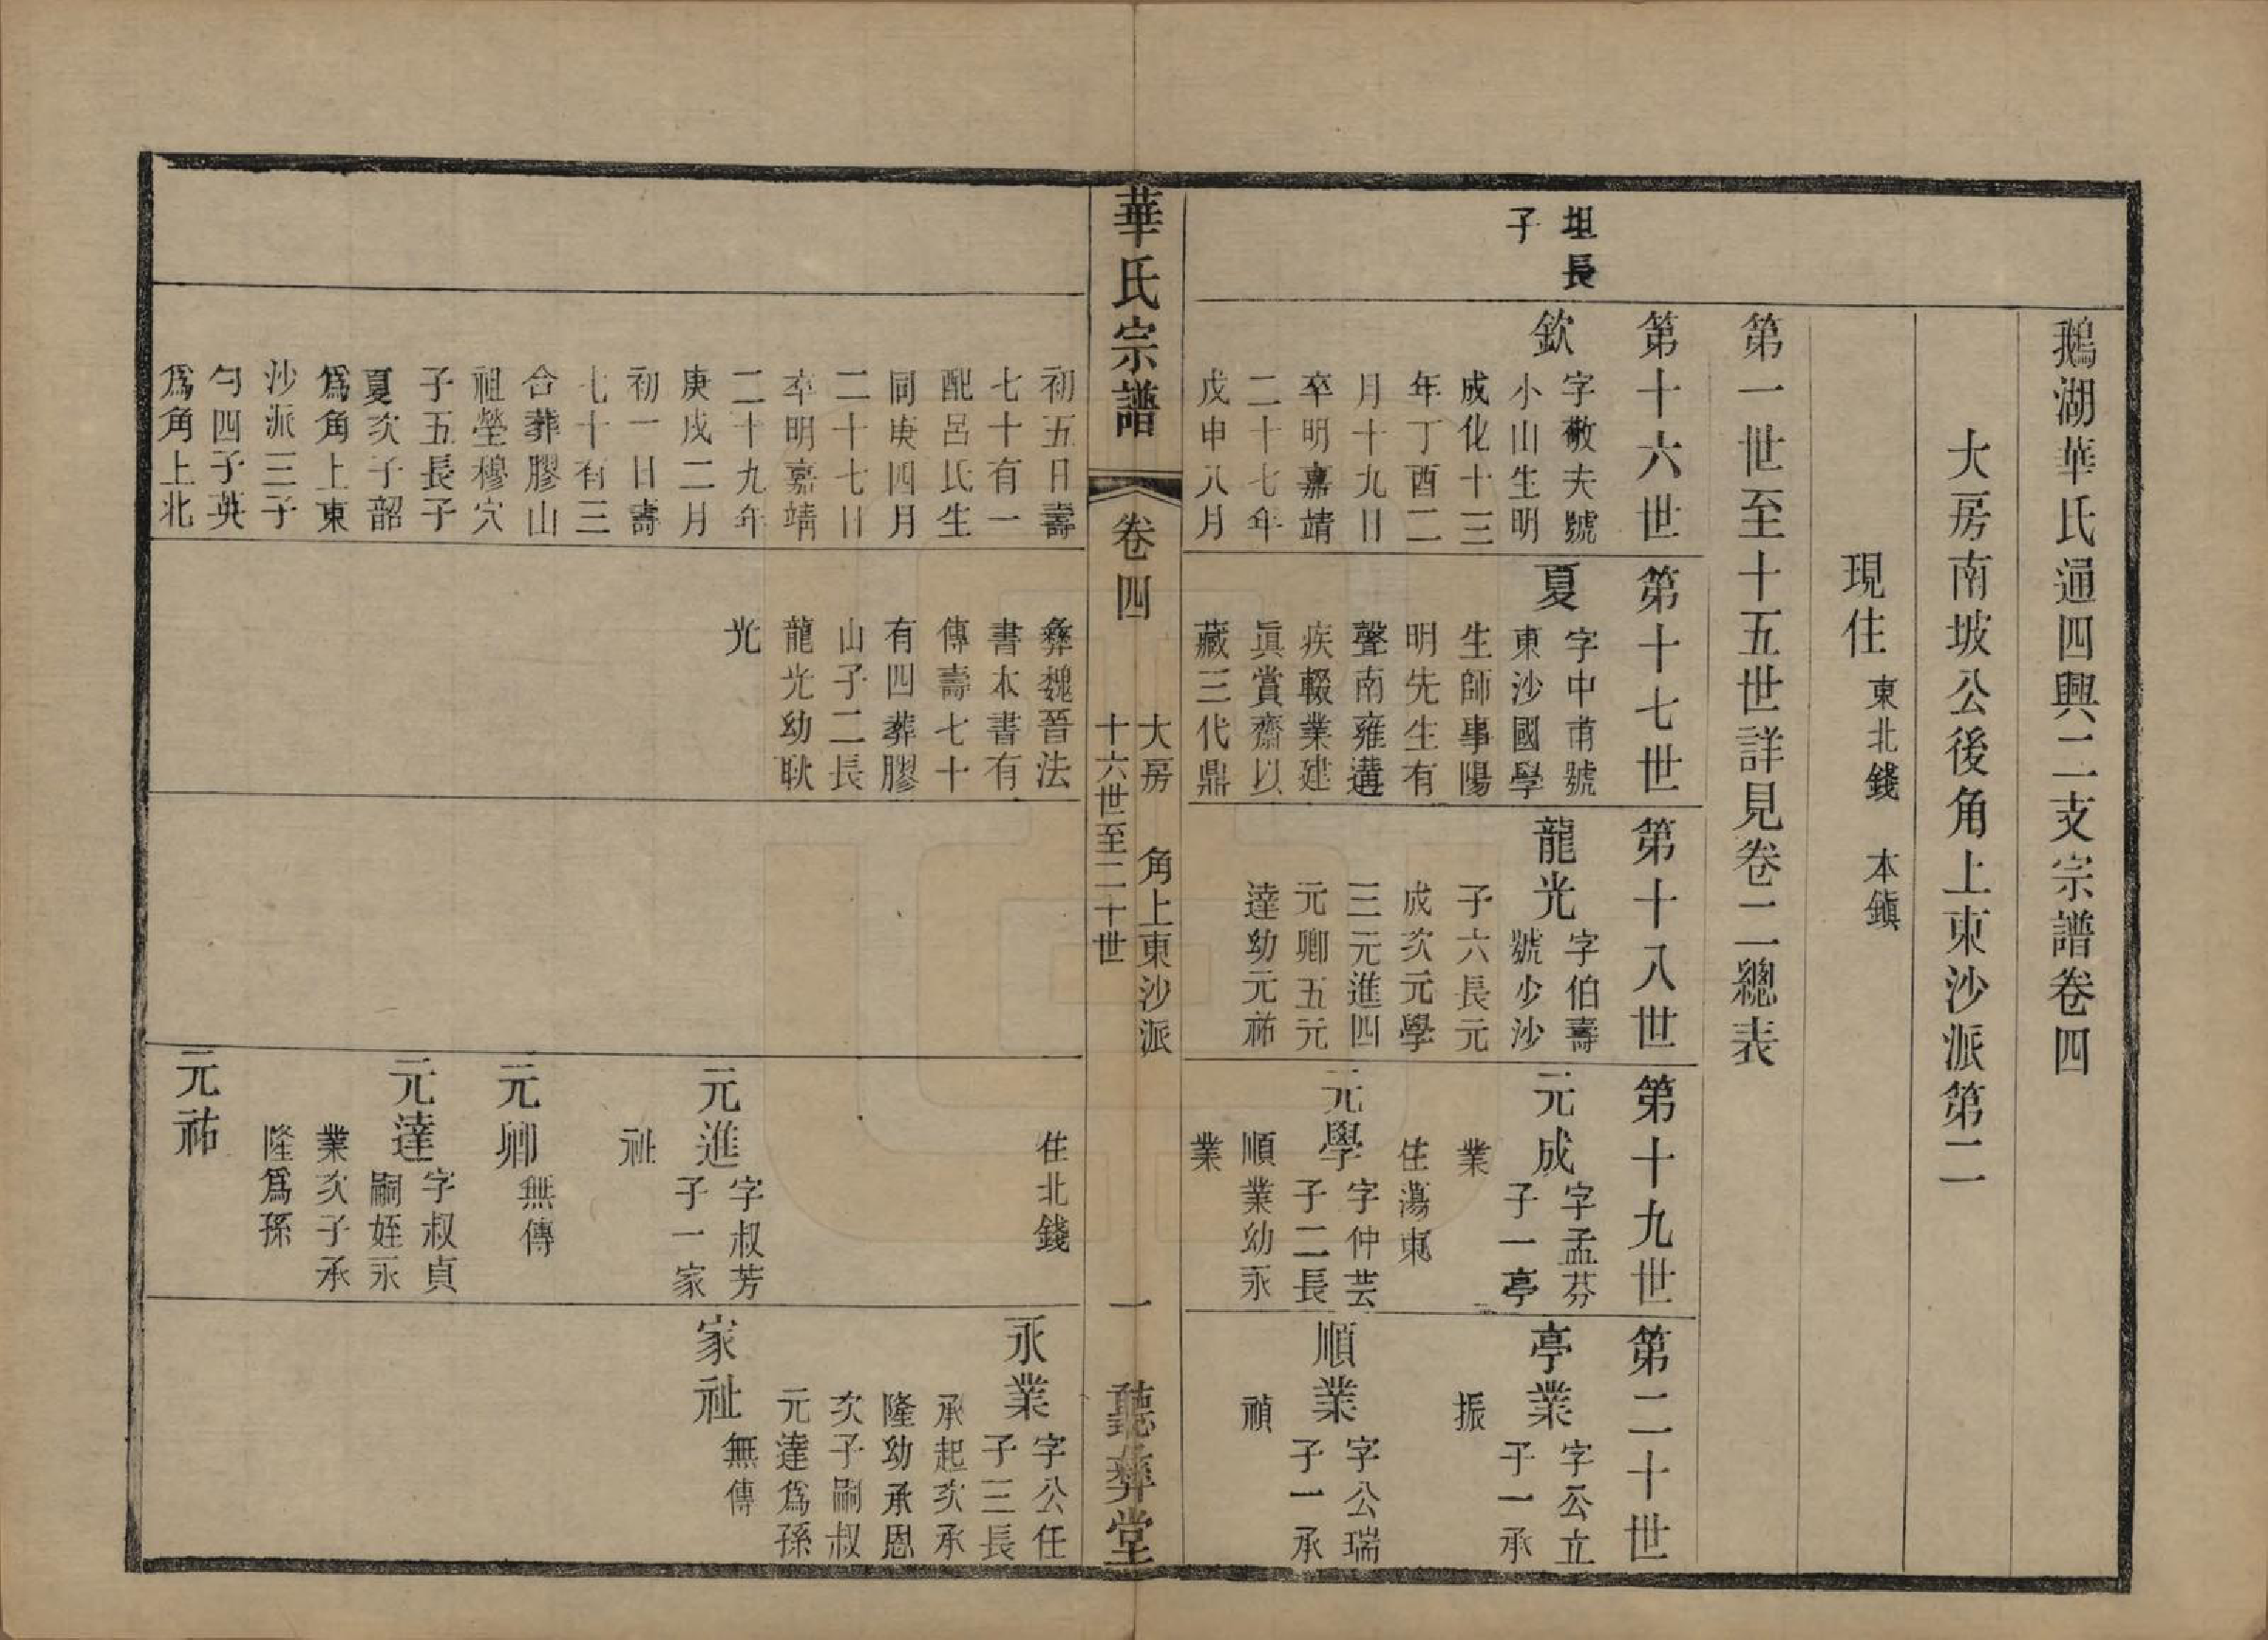 鵝湖華氏通四興二支宗譜卷四
大房南坡公後角上東沙派第二
現住 東北錢 本鎮
第一世至十五世詳見卷二總表
第十六世
第十七世
第十八世
第十九世
第二十世
坦長
子
欽
字敬夫號
小山生明
成化十三
年丁酉二
月十九日
卒明嘉靖
二十七年
戊申八月
夏
字中甫號
東沙國學
生師事陽
明先生有
聲南雍遘
疾輟業建
眞賞齋以
藏三代鼎
龍光
字伯壽
號少沙
子六長元
成次元學
三元進四
元卿五元
達幼元祐
元成
字孟芬
子一亭
業
住蕩東
元學
字仲芸
子二長
順業幼永
業
亭業
字公立
子一承
振
順業
字公瑞
子一承
禎
華氏宗譜
卷四
大房 角上東沙派
十六世至二十世
一
聽彝堂
初五日壽
七十有一
配呂氏生
同庚四月
二十七日
卒明嘉靖
二十九年
庚戌二月
初一日壽
七十有三
合葬膠山
祖塋穆穴
子五長子
夏次子韶
爲角上東
沙派三子
勻四子英
爲角上北
彝魏晉法
書本書有
傳壽七十
有四葬膠
山子二長
龍光幼耿
光
住北錢
元進
字叔芳
子一家
祉
元卿
無傳
元達
字叔貞
嗣姪永
業次子承
隆爲孫
元祐
永業
字公任
子三長
承起次承
隆幼承恩
次子嗣叔
元達爲孫
家祉
無傳